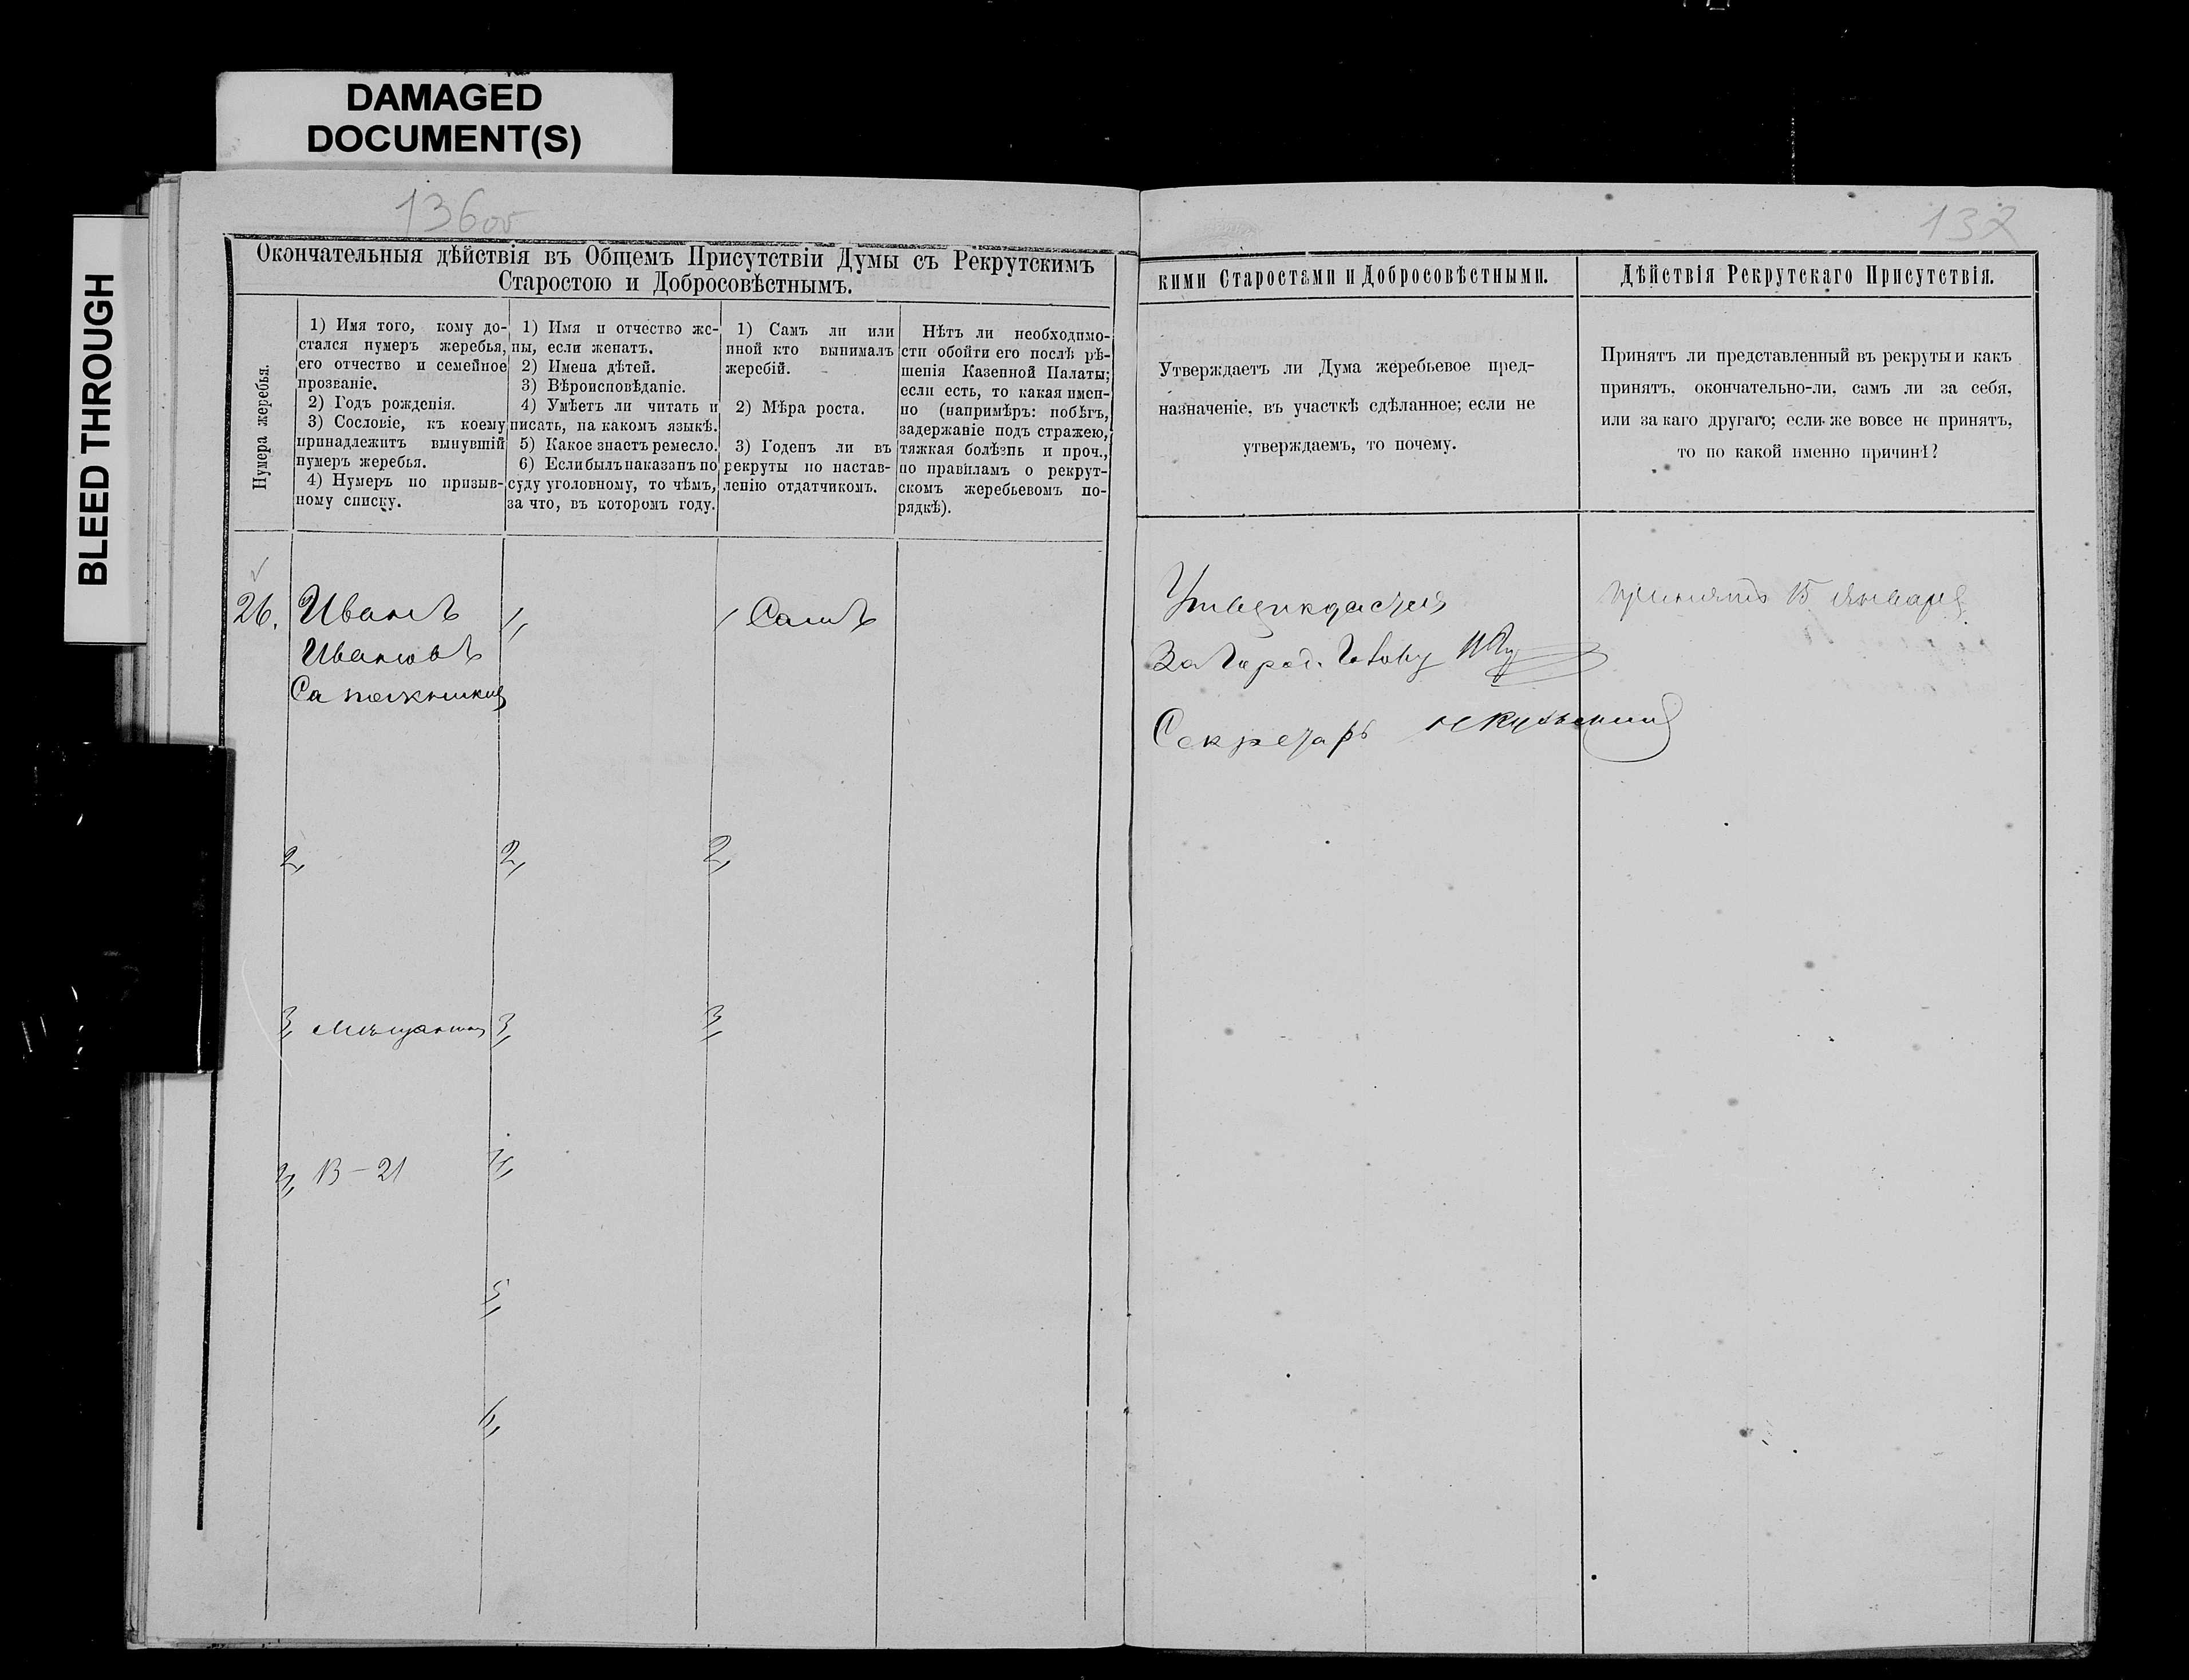 DAMAGED
DOCUMENT(S)
BLEED THROUGH
136об
137
Окончательныя дѣйствія въ Общемъ Присутствіи Думы съ Рекрутскимъ
Старостою и Добросовѣстнымъ.
Нумера жеребья.
1) Имя того, кому до-
стался нумеръ жеребья,
его отчество и семейное
прозваніе.
2) Годъ рожденія.
3) Сословіе, къ коему
принадлежитъ вынувшій
нумеръ жеребья.
4) Нумеръ по призыв-
ному списку.
1) Имя и отчество же-
ны, если женатъ.
2) Имена дѣтей.
3) Вѣроисповѣданіе.
4) Умѣетъ ли читать и
писать, на какомъ языкѣ.
5) Какое знаетъ ремесло.
6) Если былъ наказанъ по
суду уголовному, то чѣмъ,
за что, въ которомъ году.
1) Самъ ли или
иной кто вынималъ
жеребій.
2) Мѣра роста.
3) Годенъ ли въ
рекруты по настав-
ленію отдатчикомъ.
Нѣтъ ли необходимо-
сти обойти его послѣ рѣ-
шенія Казенной Палаты;
если есть, то какая имен-
но (напримѣръ: побѣгъ,
задержаніе подъ стражею,
тяжкая болѣзнь и проч.,
по правиламъ о рекрут-
скомъ жеребьевомъ по-
рядкѣ).
кими Старостами и Добросовѣстными.
Утверждаетъ ли Дума жеребьевое пред-
назначеніе, въ участкѣ сдѣланное; если не
утверждаемъ, то почему.
Дѣйствія Рекрутскаго Присутствія.
Принятъ ли представленный въ рекруты и какъ
принятъ, окончательно-ли, самъ ли за себя,
или за каго другаго; если же вовсе не принятъ,
то по какой именно причинѣ?
26.
Иванъ
Ивановъ
Сапожников
2,
3, Мѣщанинъ
4, 13-21
1,
2,
3,
4,
5,
6,
1 Самъ
2,
3,
Утверждается
За Город. Голову
Секретарь
принятъ 15 Января